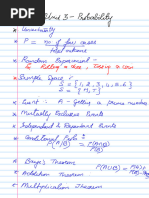 Unit 3 - Probability
* Uncertainty
* P = no of fav cases
Total
* Random Experiment -
Ex Rolling a dice, Tossing a coin
* Sample Space :
S = { 1, 2, 3, 4, 5, 6 }
S = {
* Event : A - Getting a prime number
* Mutually Exclusive Events
* Independent & Dependent Events
* Conditional Rule :
P(A/B) = P(A∩B)
P(B)
* Baye's Theorem
* Addition Theorem P(A∪B) = P(A)+
* Multiplication Theorem